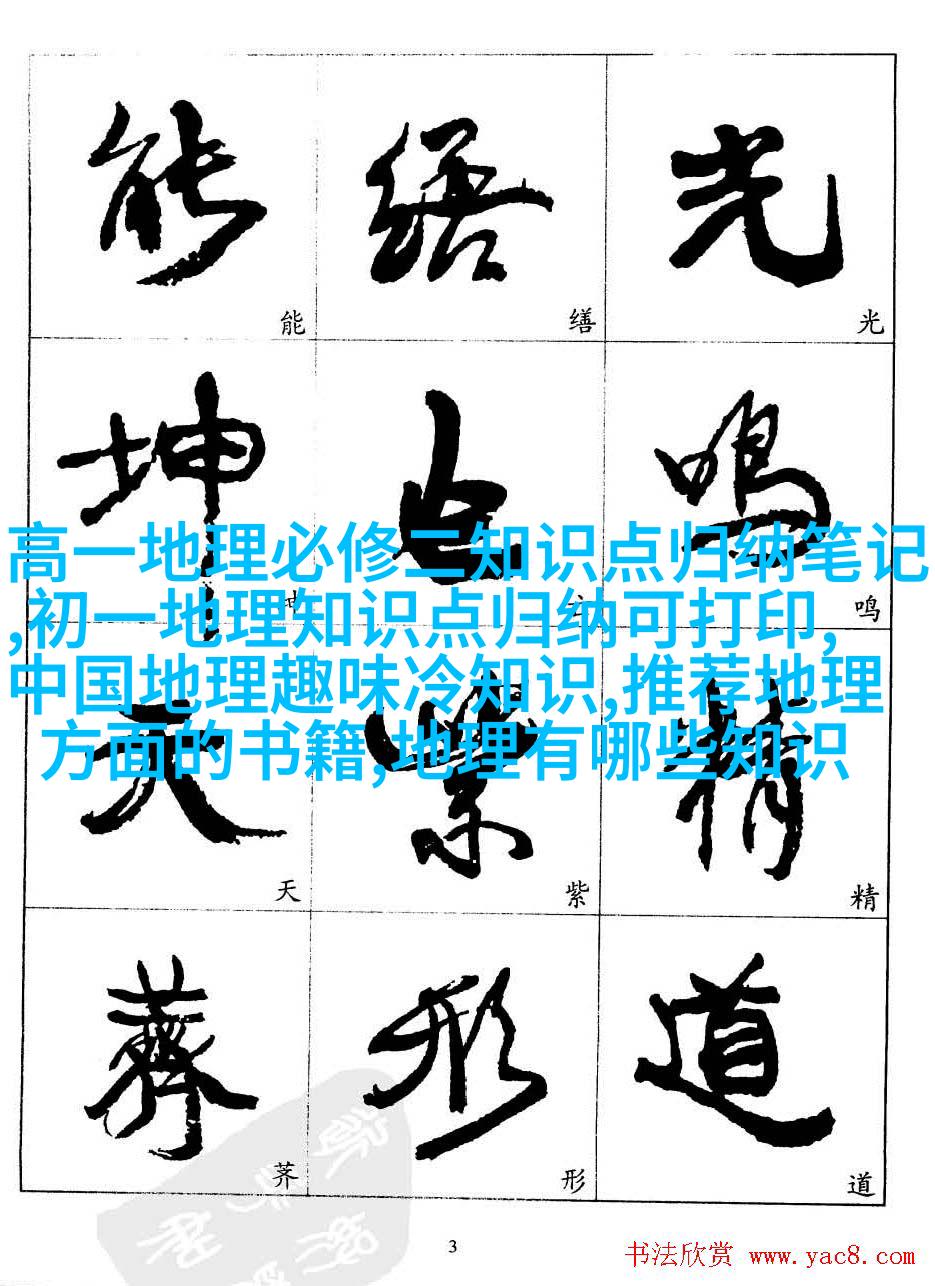 能 缮 光
能 缮 光
坤 亡 鸣
高一地理必修二知识点归纳笔记
,初一地理知识点归纳可打印,
坤 鸣
中国地理趣味冷知识,推荐地理
方面的书籍,地理有哪些知识
天 紫 精
天 紫 精
荠 形 道
荠 形 道
3
书法欣赏 www.yac8.com